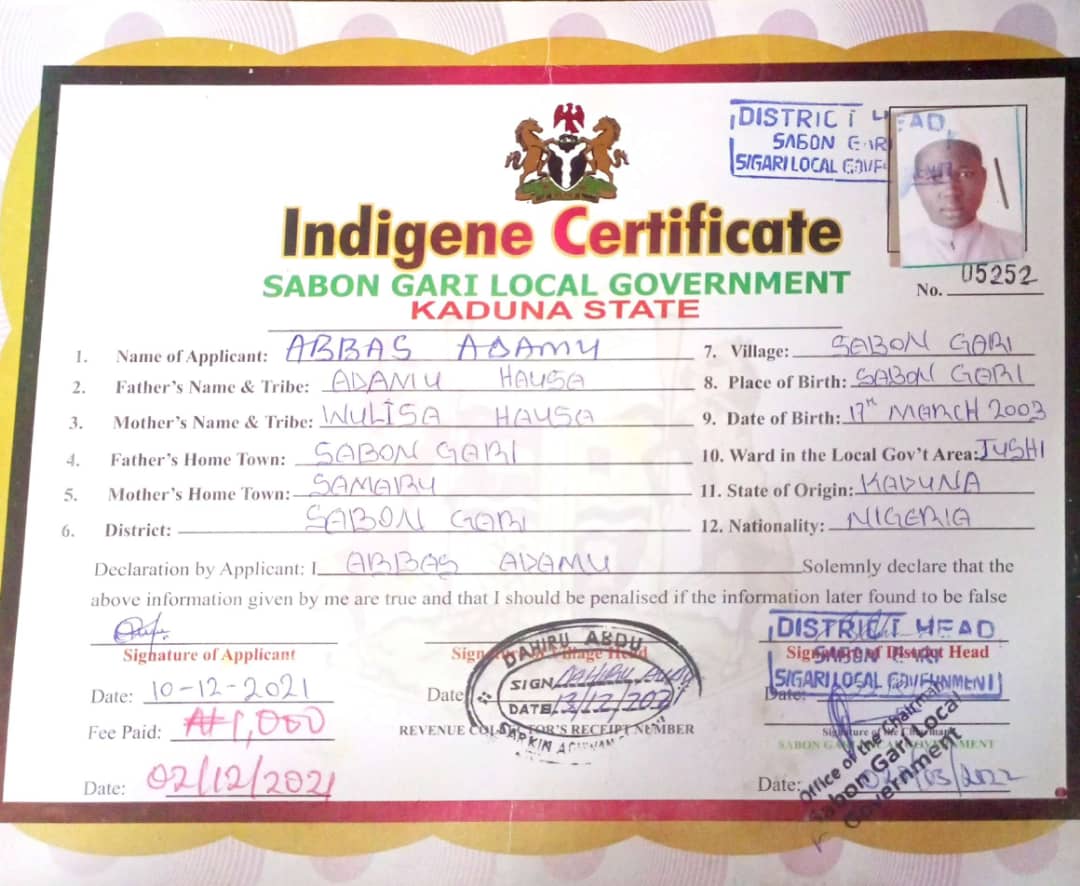 DISTRICT HEAD
SABON GARI
S/GARI LOCAL GOVE
Indigene Certificate
SABON GARI LOCAL GOVERNMENT
KADUNA STATE
No. 05252
1. Name of Applicant: ABBAS ADAMU
2. Father's Name & Tribe: ADAMU HAUSA
3. Mother's Name & Tribe: WULISA HAUSA
4. Father's Home Town: SABON GARI
5. Mother's Home Town: SAMARU
6. District: SABON GARI
7. Village: SABON GARI
8. Place of Birth: SABON GARI
9. Date of Birth: 17TH MARCH 2003
10. Ward in the Local Gov't Area: JUSHI
11. State of Origin: KADUNA
12. Nationality: NIGERIA
Declaration by Applicant: I ABBAS ADAMU Solemnly declare that the
above information given by me are true and that I should be penalised if the information later found to be false
Signature of Applicant
Date: 10-12-2021
Fee Paid: ₦1,000
Date: 02/12/2021
Signature of Village Head
Date:
DAHIRU ABDU
SIGN DAHIRU ABDU
DATE 13/12/2021
SARKIN
REVENUE COLLECTOR'S RECEIPT NUMBER
DISTRICT HEAD
SABON GARI
S/GARI LOCAL GOVERNMENT
Signature of District Head
Date:
Signature of the Chairman
SABON GARI LOCAL GOVERNMENT
Office of the Chairman
Sabon Gari Local
Government
Date: /03/2022